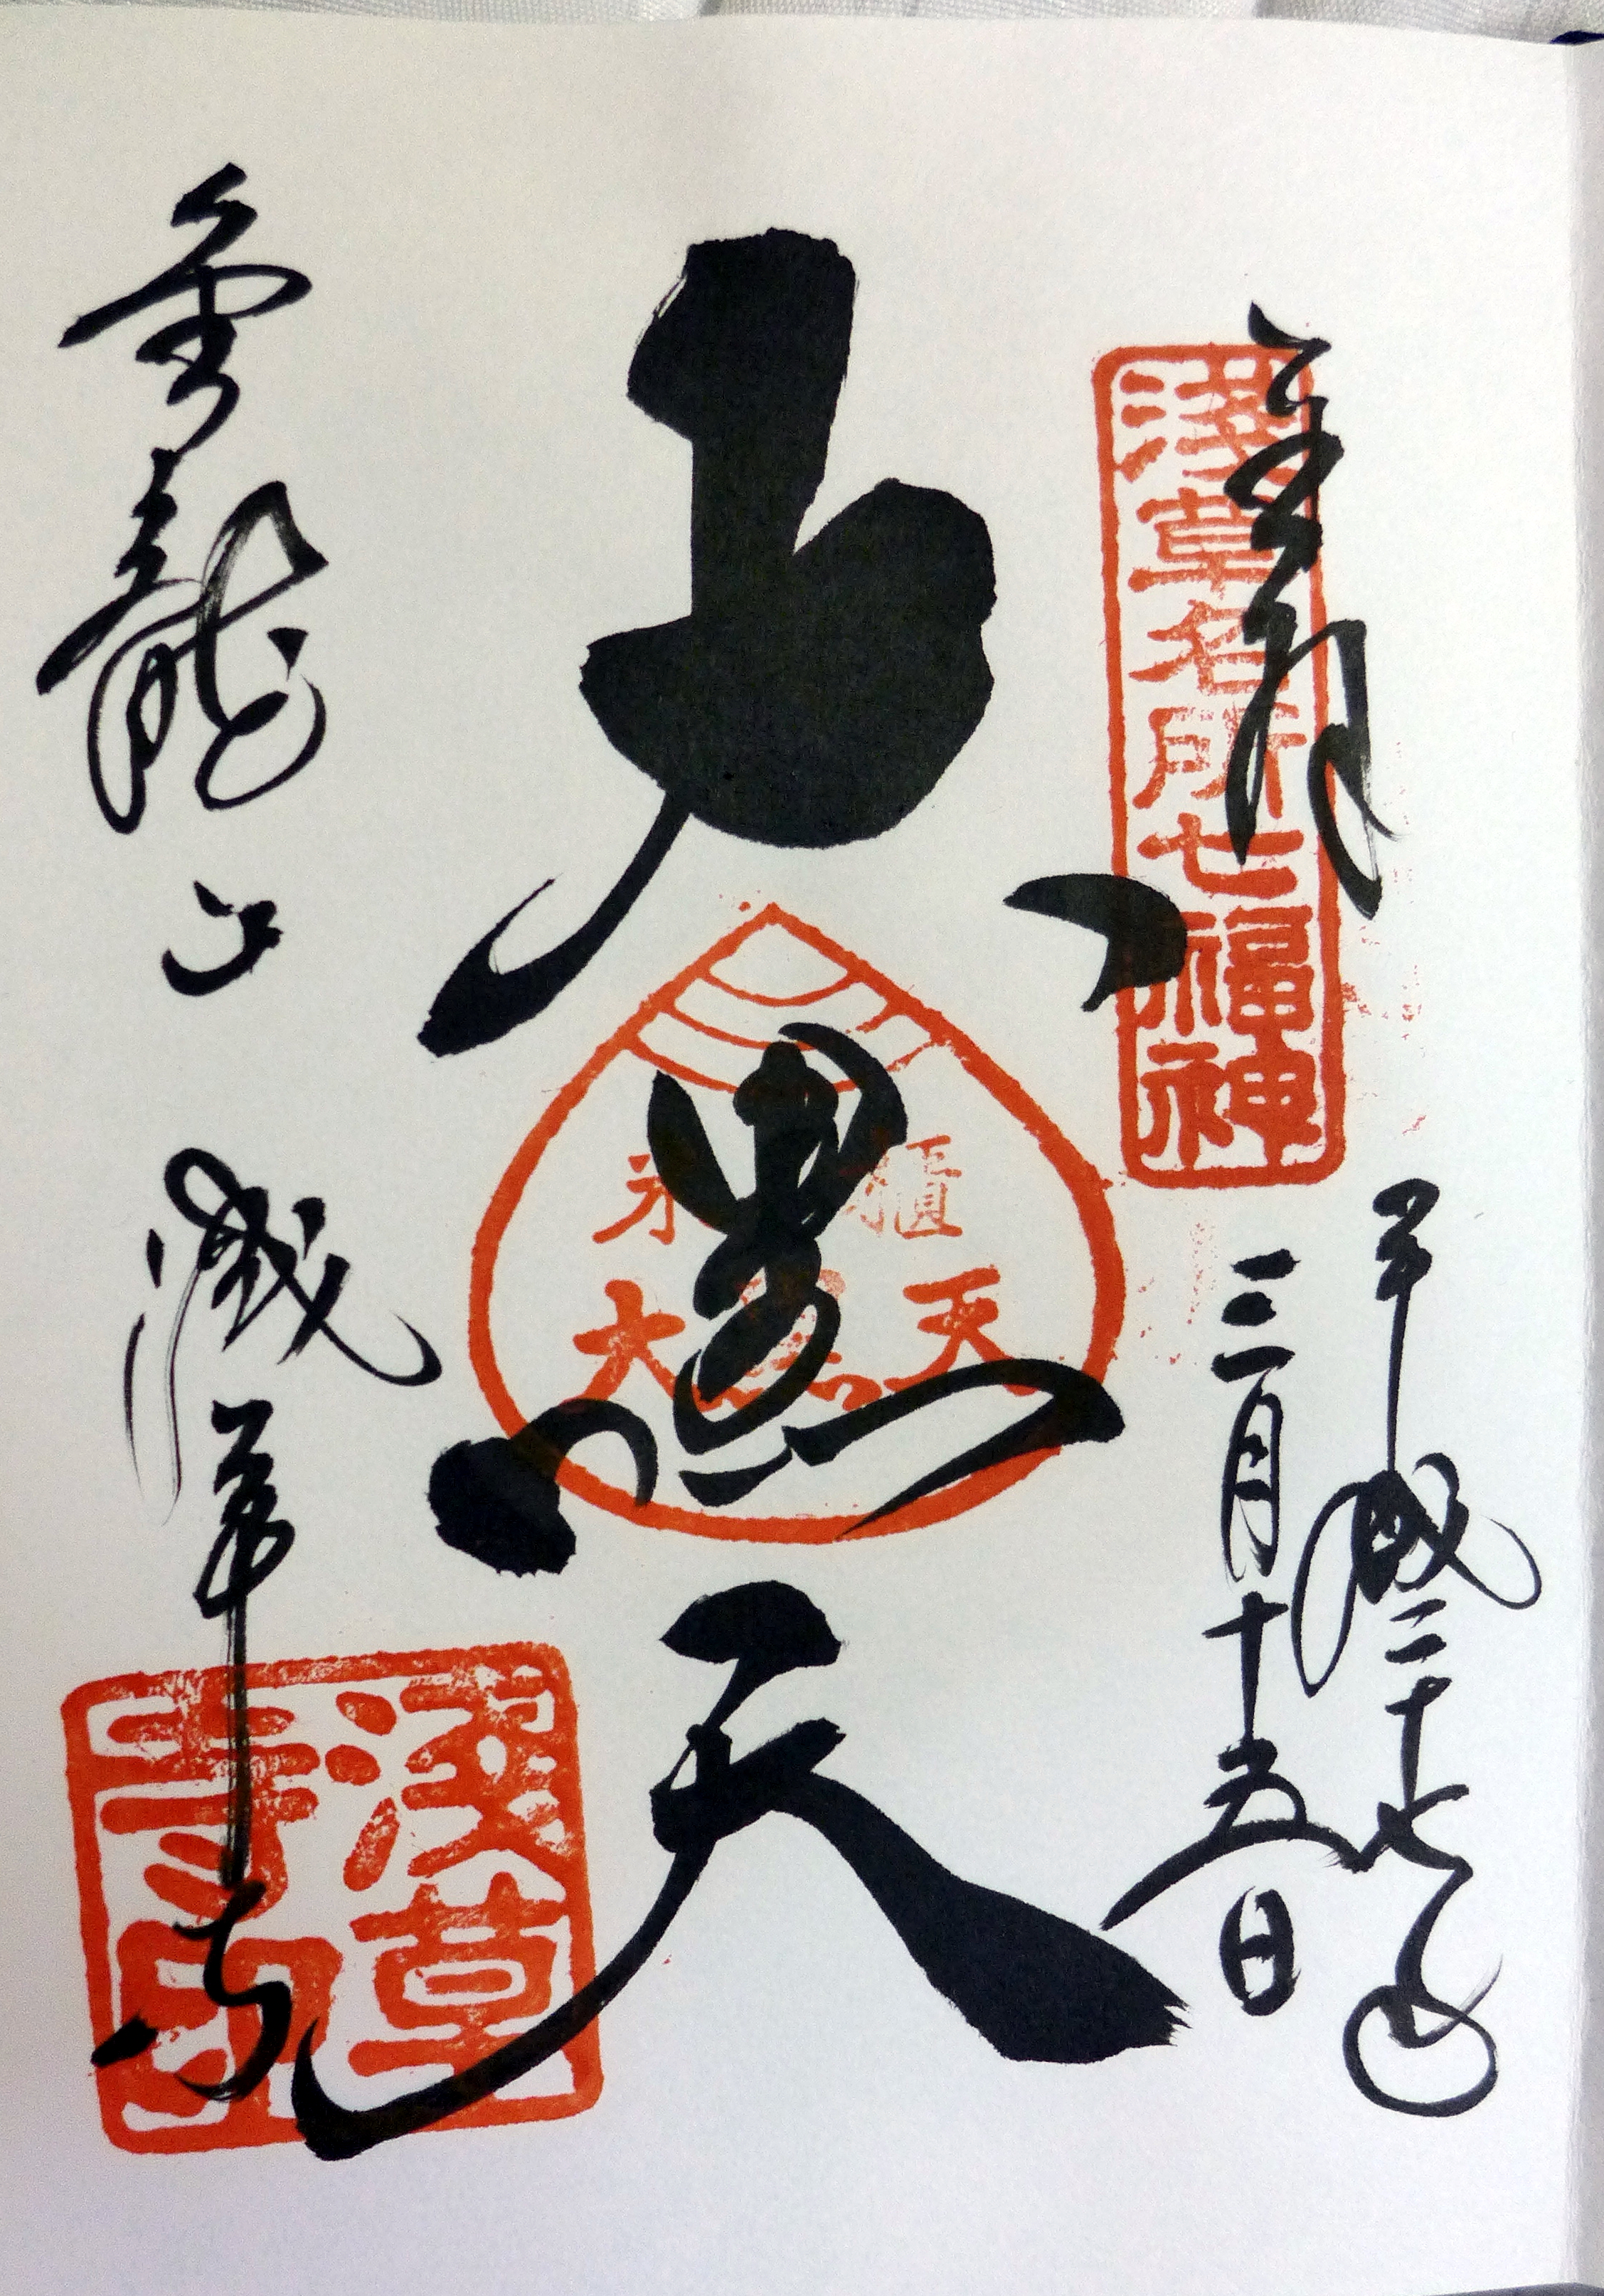 奉拝
浅草名所七福神
平成二十七年
三月十五日
大黒天
米櫃
大黒天
金龍山
浅草寺
浅草
寺印